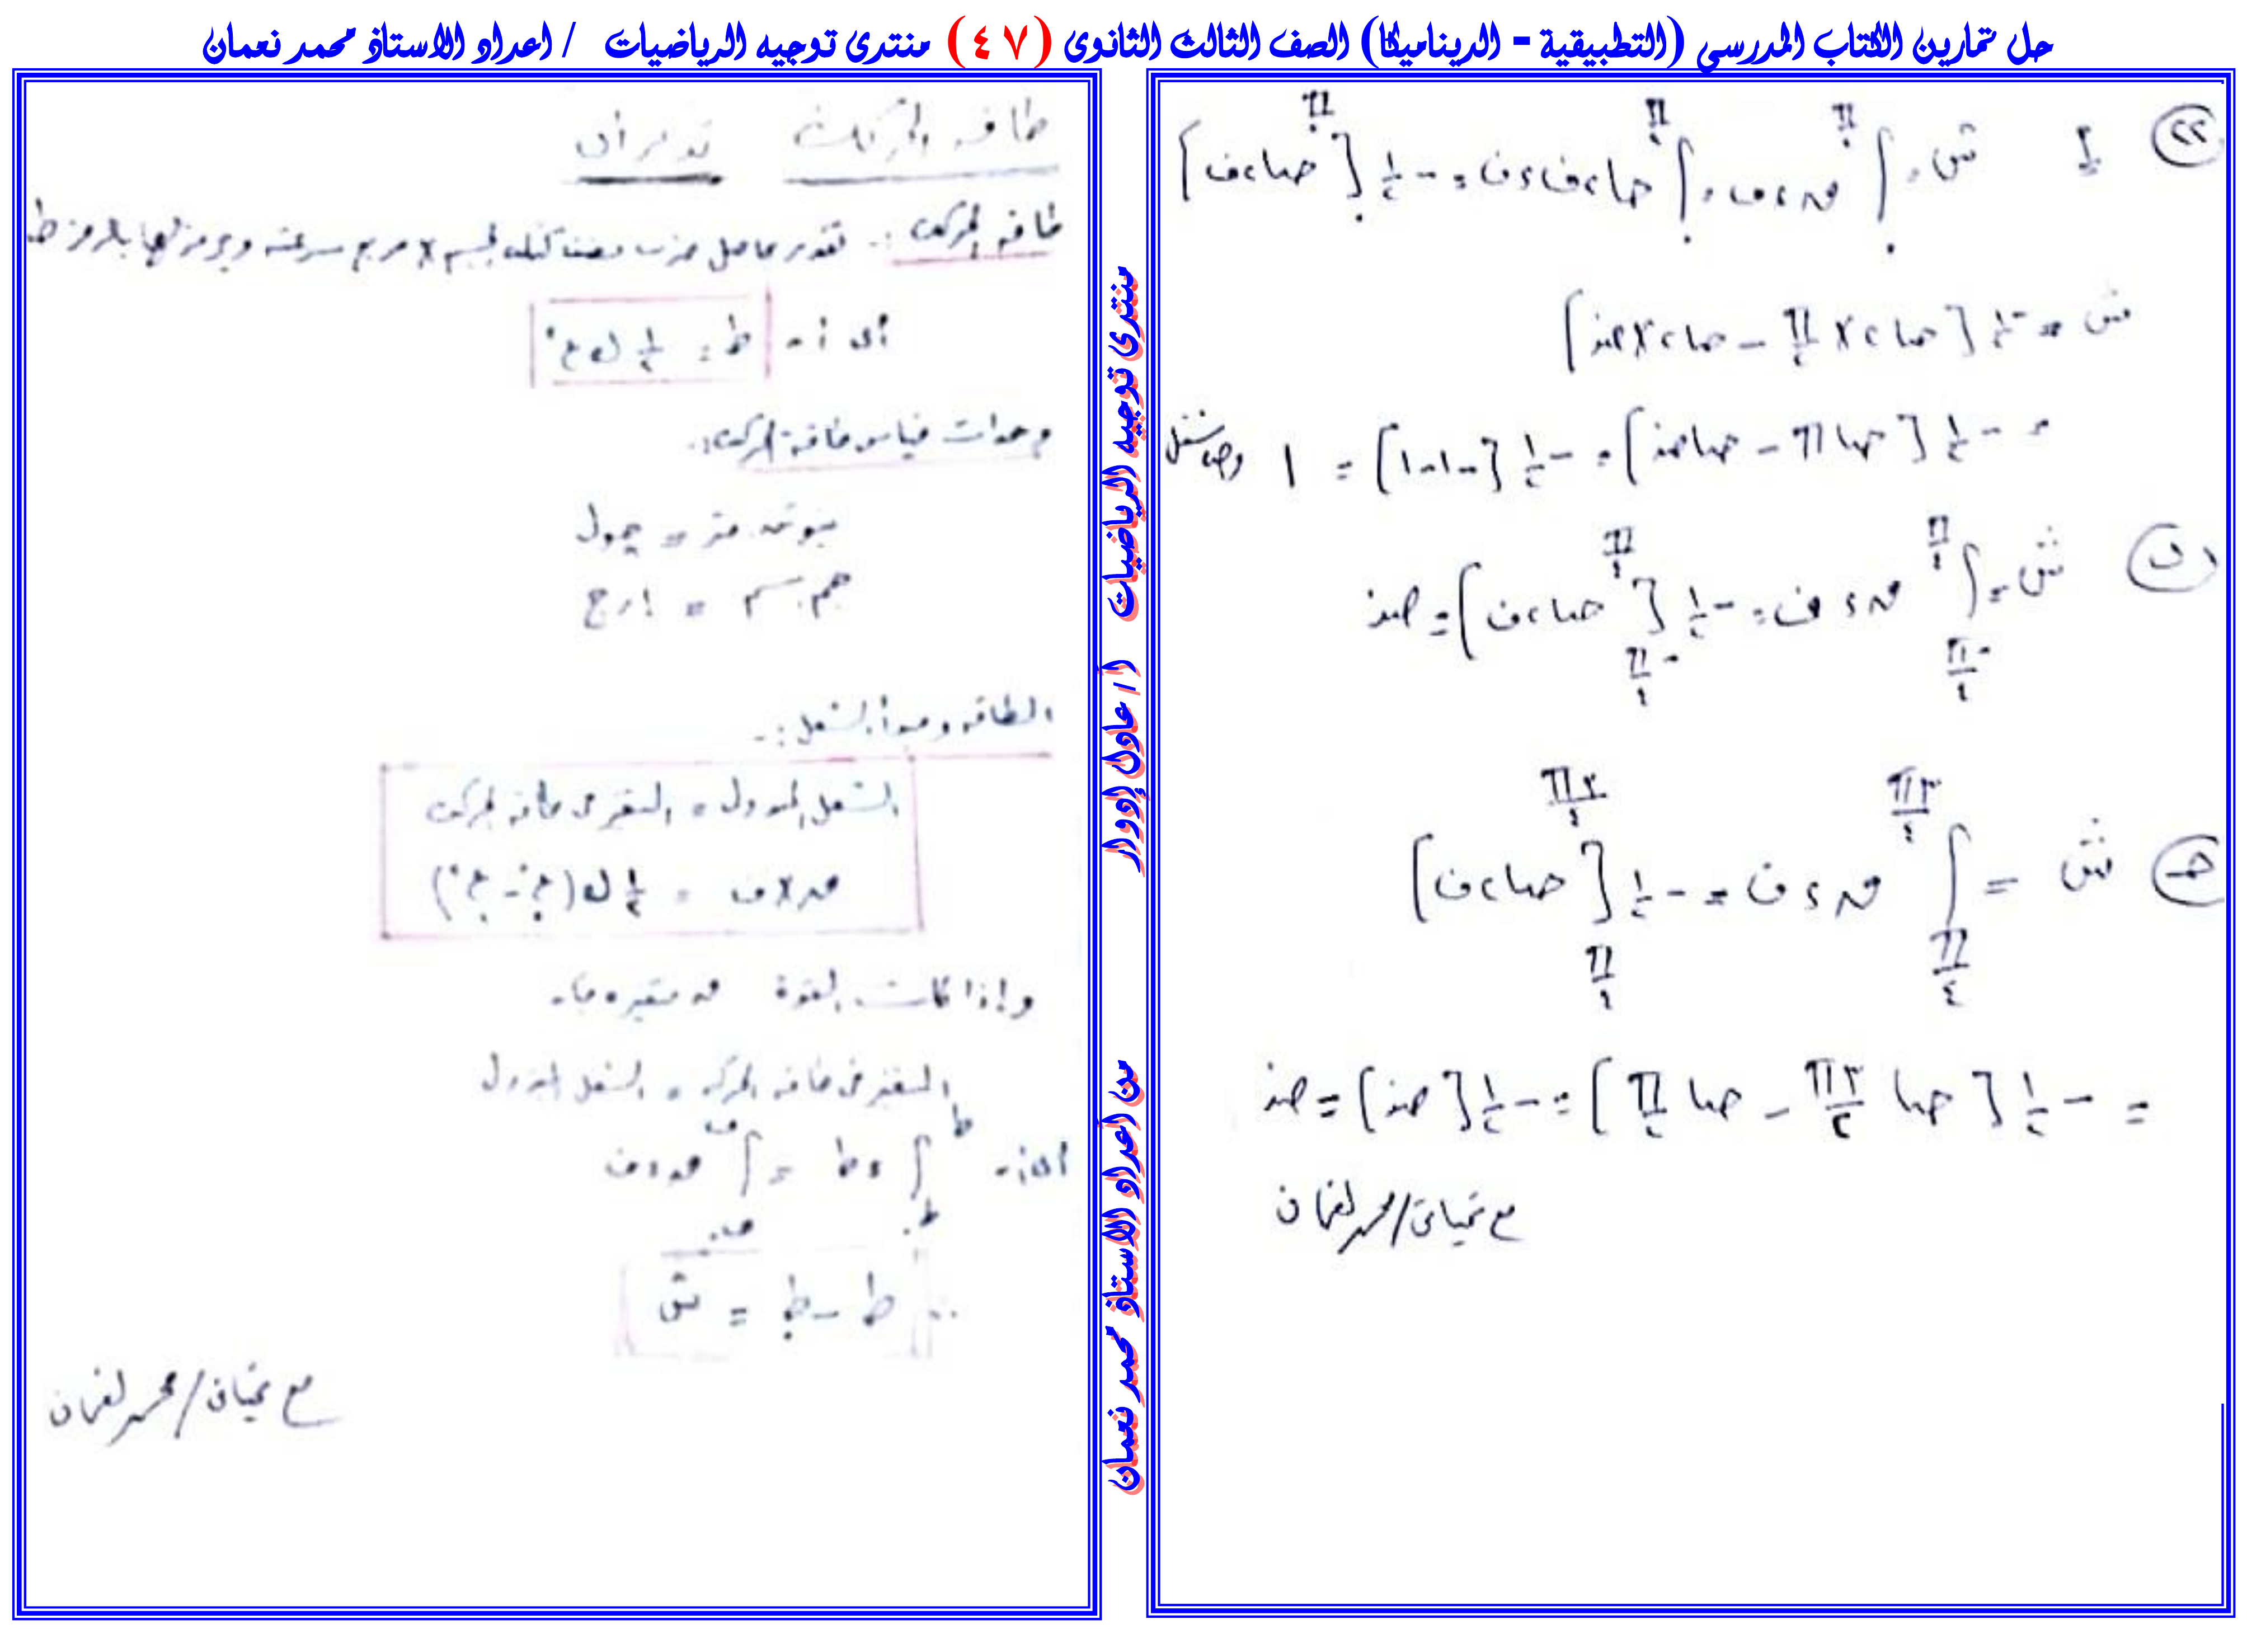 حل تمارين الكتاب المدرسي (التطبيقية - الديناميكا) الصف الثالث الثانوى (٤٧) منتدى توجيه الرياضيات / اعداد الاستاذ محمد نعمان
٢٢ أ ش = ∫٠^(π/٢) ق ء ف = ∫٠^(π/٢) حا٢ف ء ف = -١/٢ [حتا٢ف]٠^(π/٢)
ش = -١/٢ [حتا٢ × π/٢ - حتا٢ × صفر]
= -١/٢ [حتا π - حتا صفر] = -١/٢ [-١-١] = ١ وحدة شغل
ب ش = ∫ ق ء ف = -١/٢ [حتا٢ف] = صفر
حـ ش = ∫_(π/٤)^(٣π/٤) ق ء ف = -١/٢ [حتا٢ف]_(π/٤)^(٣π/٤)
= -١/٢ [حتا ٣π/٢ - حتا π/٢] = -١/٢ [صفر] = صفر
مع تحياتى / محمد نعمان
منتدى توجيه الرياضيات أ / عادل إدوار
من اعداد الاستاذ محمد نعمان
طاقة الحركة
طاقة الحركة :- تقدر بحاصل ضرب نصف كتلة الجسم × مربع سرعته ويرمز لها بالرمز ط
أى أن ط = ١/٢ ك ع٢
وحدات قياس طاقة الحركة :-
نيوتن.متر = جول
جم.سم = إرج
الطاقة ومبدأ الشغل :-
الشغل المبذول = التغير فى طاقة الحركة
ق × ف = ١/٢ ك (ع٢ - ع٠٢)
وإذا كانت القوة ق متغيرة فإن
التغير فى طاقة الحركة = الشغل المبذول
أى أن ∫_ط٠^ط ء ط = ∫_ف٠^ف ق ء ف
∴ ط - ط٠ = ش
مع تحياتى / محمد نعمان